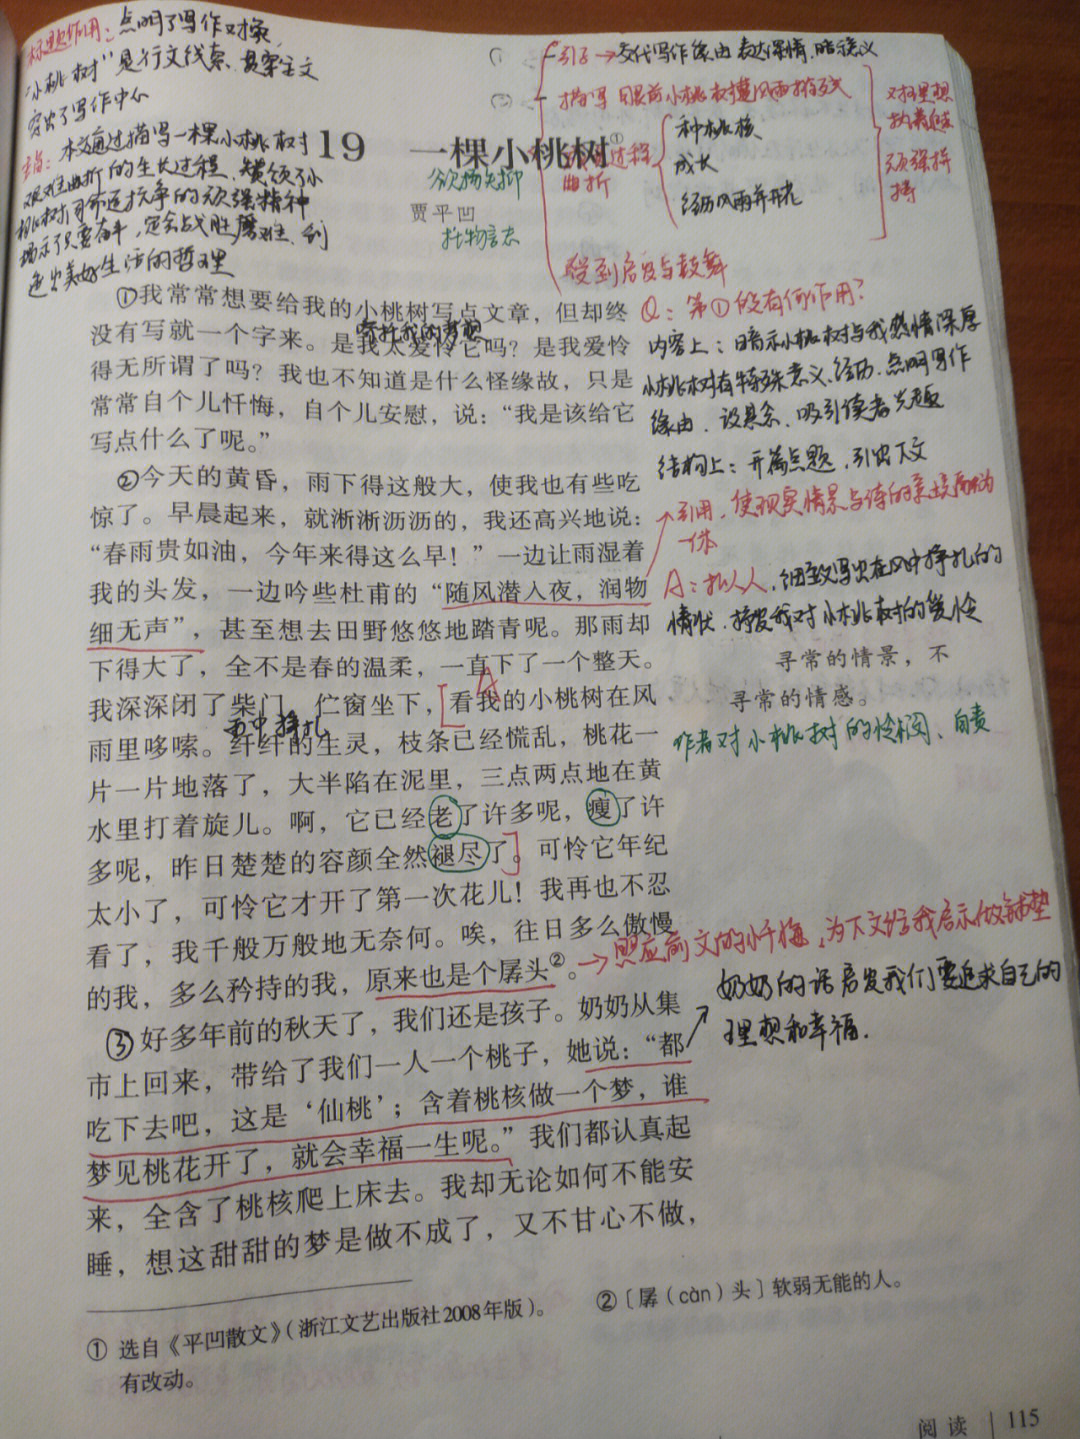 标题作用：点明了写作对象，
“小桃树”是行文线索，贯穿全文
突出了写作中心
主旨：本文通过描写一棵小桃树
艰难曲折的生长过程，赞颂了小
桃树同命运抗争的顽强精神
揭示了只要奋斗，定会战胜磨难，创
造出美好生活的哲理
① 引子→交代写作缘由 表达深情、暗示意义
② 描写 眼前小桃树遭风雨摧残
过程
曲折
种桃核
成长
经历风雨并开花
对理想
执着追
顽强拼
搏
受到启发与鼓舞
19 一棵小桃树①
欲扬先抑
贾平凹
托物言志
①我常常想要给我的小桃树写点文章，但却终
没有写就一个字来。是我太爱怜它吗？是我爱怜
寄托我的梦想
得无所谓了吗？我也不知道是什么怪缘故，只是
常常自个儿忏悔，自个儿安慰，说：“我是该给它
写点什么了呢。”
Q：第①段有何作用？
内容上：暗示小桃树与我感情深厚
小桃树有特殊意义、经历，点明写作
缘由，设悬念，吸引读者兴趣
结构上：开篇点题，引出下文
②今天的黄昏，雨下得这般大，使我也有些吃
惊了。早晨起来，就淅淅沥沥的，我还高兴地说：
“春雨贵如油，今年来得这么早！”一边让雨湿着
我的头发，一边吟些杜甫的“随风潜入夜，润物
细无声”，甚至想去田野悠悠地踏青呢。那雨却
下得大了，全不是春的温柔，一直下了一个整天。
我深深闭了柴门，伫窗坐下，看我的小桃树在风
雨里哆嗦。纤纤的生灵，枝条已经慌乱，桃花一
雨中挣扎
片一片地落了，大半陷在泥里，三点两点地在黄
水里打着旋儿。啊，它已经老了许多呢，瘦了许
多呢，昨日楚楚的容颜全然褪尽了。可怜它年纪
太小了，可怜它才开了第一次花儿！我再也不忍
看了，我千般万般地无奈何。唉，往日多么傲慢
的我，多么矜持的我，原来也是个孱头②。
引用，使现实情景与诗的意境融为
一体
A
A：拟人，细致写出在风中挣扎的
情状，抒发我对小桃树的爱怜
寻常的情景，不
寻常的情感。
作者对小桃树的怜悯、自责
→照应前文的忏悔，为下文给我启示做铺垫
③好多年前的秋天了，我们还是孩子。奶奶从集
市上回来，带给了我们一人一个桃子，她说：“都
吃下去吧，这是‘仙桃’；含着桃核做一个梦，谁
梦见桃花开了，就会幸福一生呢。”我们都认真起
来，全含了桃核爬上床去。我却无论如何不能安
睡，想这甜甜的梦是做不成了，又不甘心不做，
奶奶的话启发我们要追求自己的
理想和幸福.
① 选自《平凹散文》（浙江文艺出版社2008年版）。
有改动。
②〔孱（càn）头〕软弱无能的人。
阅读 | 115